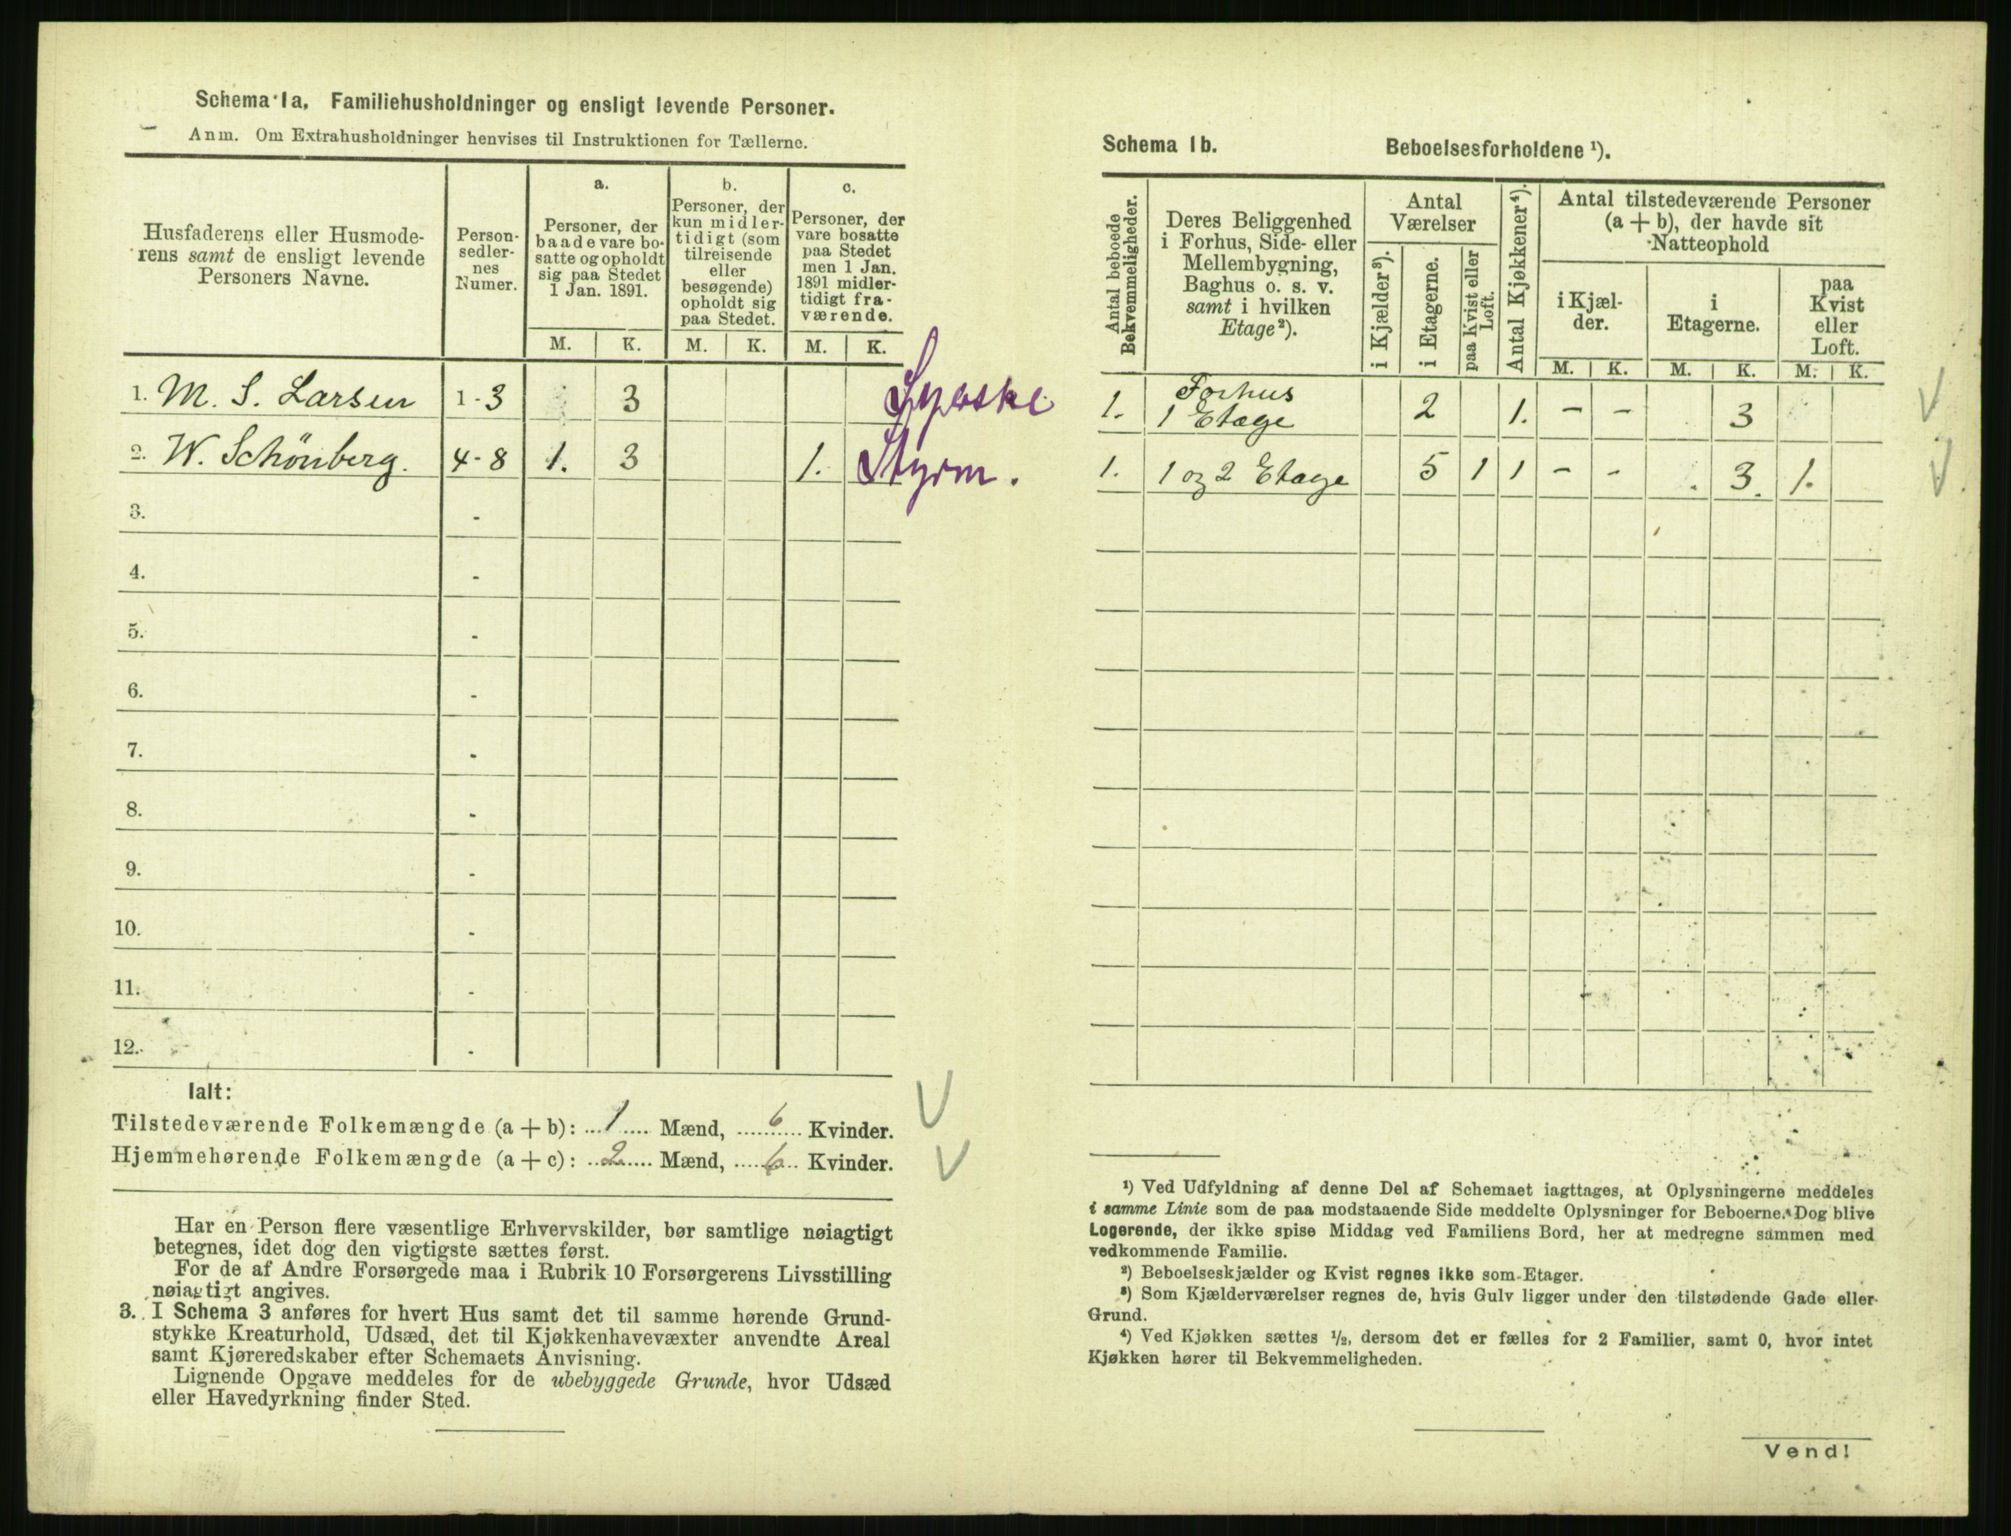 Schema 1a. Familiehusholdninger og ensligt levende Personer.
Anm. Om Extrahusholdninger henvises til Instruktionen for Tællerne.
Husfaderens eller Husmode-
rens samt de ensligt levende
Personers Navne.
Person-
sedler-
nes
Numer.
a.
Personer, der
baade vare bo-
satte og opholdt
sig paa Stedet
1 Jan. 1891.
b.
Personer, der
kun midler-
tidigt (som
tilreisende
eller
besøgende)
opholdt sig
paa Stedet.
c.
Personer, der
vare bosatte
paa Stedet
men 1 Jan.
1891 midler-
tidigt fra-
værende.
M. K. M. K. M. K.
1. M. S. Larsen 1-3 3
2. W. Schönberg. 4-8 1. 3 1. Styrm.
3. -
4. -
5. -
6. -
7. -
8. -
9. -
10. -
11. -
12. -
Ialt:
Tilstedeværende Folkemængde (a + b): 1 Mænd, 6 Kvinder.
Hjemmehørende Folkemængde (a + c): 2 Mænd, 6 Kvinder.
Har en Person flere væsentlige Erhvervskilder, bør samtlige nøiagtigt
betegnes, idet dog den vigtigste sættes først.
For de af Andre Forsørgede maa i Rubrik 10 Forsørgerens Livsstilling
nøiagtigt angives.
3. I Schema 3 anføres for hvert Hus samt det til samme hørende Grund-
stykke Kreaturhold, Udsæd, det til Kjøkkenhavevæxter anvendte Areal
samt Kjøreredskaber efter Schemaets Anvisning.
Lignende Opgave meddeles for de ubebyggede Grunde, hvor Udsæd
eller Havedyrkning finder Sted.
Schema 1b. Beboelsesforholdene ¹).
Antal beboede
Bekvemmeligheder.
Deres Beliggenhed
i Forhus, Side- eller
Mellembygning,
Baghus o. s. v.
samt i hvilken
Etage²).
Antal
Værelser
i Kjælder³).
i Etagerne.
paa Kvist eller
Loft.
Antal Kjøkkener⁴).
Antal tilstedeværende Personer
(a + b), der havde sit
Natteophold
i Kjæl-
der.
i
Etagerne.
paa
Kvist
eller
Loft.
M. K. M. K. M. K.
1. Forhus
1 Etage 2 1. - - 3
1. 1 og 2 Etage 5 1 1 - - . 3. 1.
¹) Ved Udfyldning af denne Del af Schemaet iagttages, at Oplysningerne meddeles
i samme Linie som de paa modstaaende Side meddelte Oplysninger for Beboerne. Dog blive
Logerende, der ikke spise Middag ved Familiens Bord, her at medregne sammen med
vedkommende Familie.
²) Beboelseskjælder og Kvist regnes ikke som Etager.
³) Som Kjælderværelser regnes de, hvis Gulv ligger under den tilstødende Gade eller
Grund.
⁴) Ved Kjøkken sættes ½, dersom det er fælles for 2 Familier, samt 0, hvor intet
Kjøkken hører til Bekvemmeligheden.
Vend!